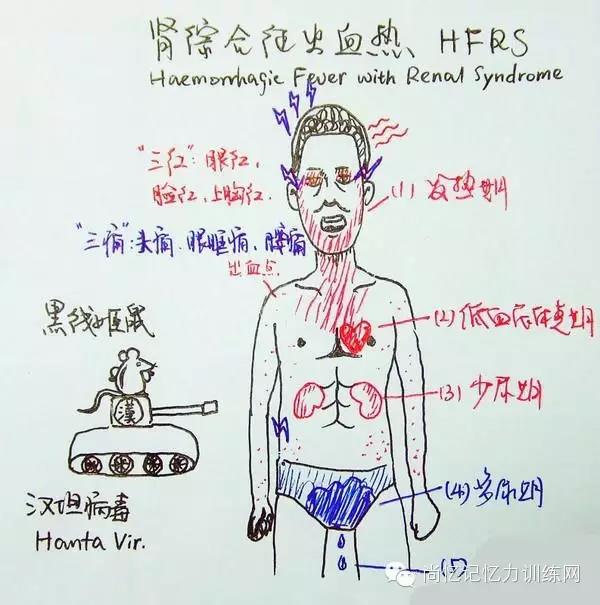 肾综合征出血热 HFRS
Haemorrhagic Fever with Renal Syndrome
"三红":眼红,
脸红,上胸红.
(1)发热期
"三痛":头痛.眼眶痛、腰痛
出血点
黑线姬鼠
(2)低血压休克期
漢
(3)少尿期
汉坦病毒
Hanta Vir.
(4)多尿期
(5)
尚忆记忆力训练网